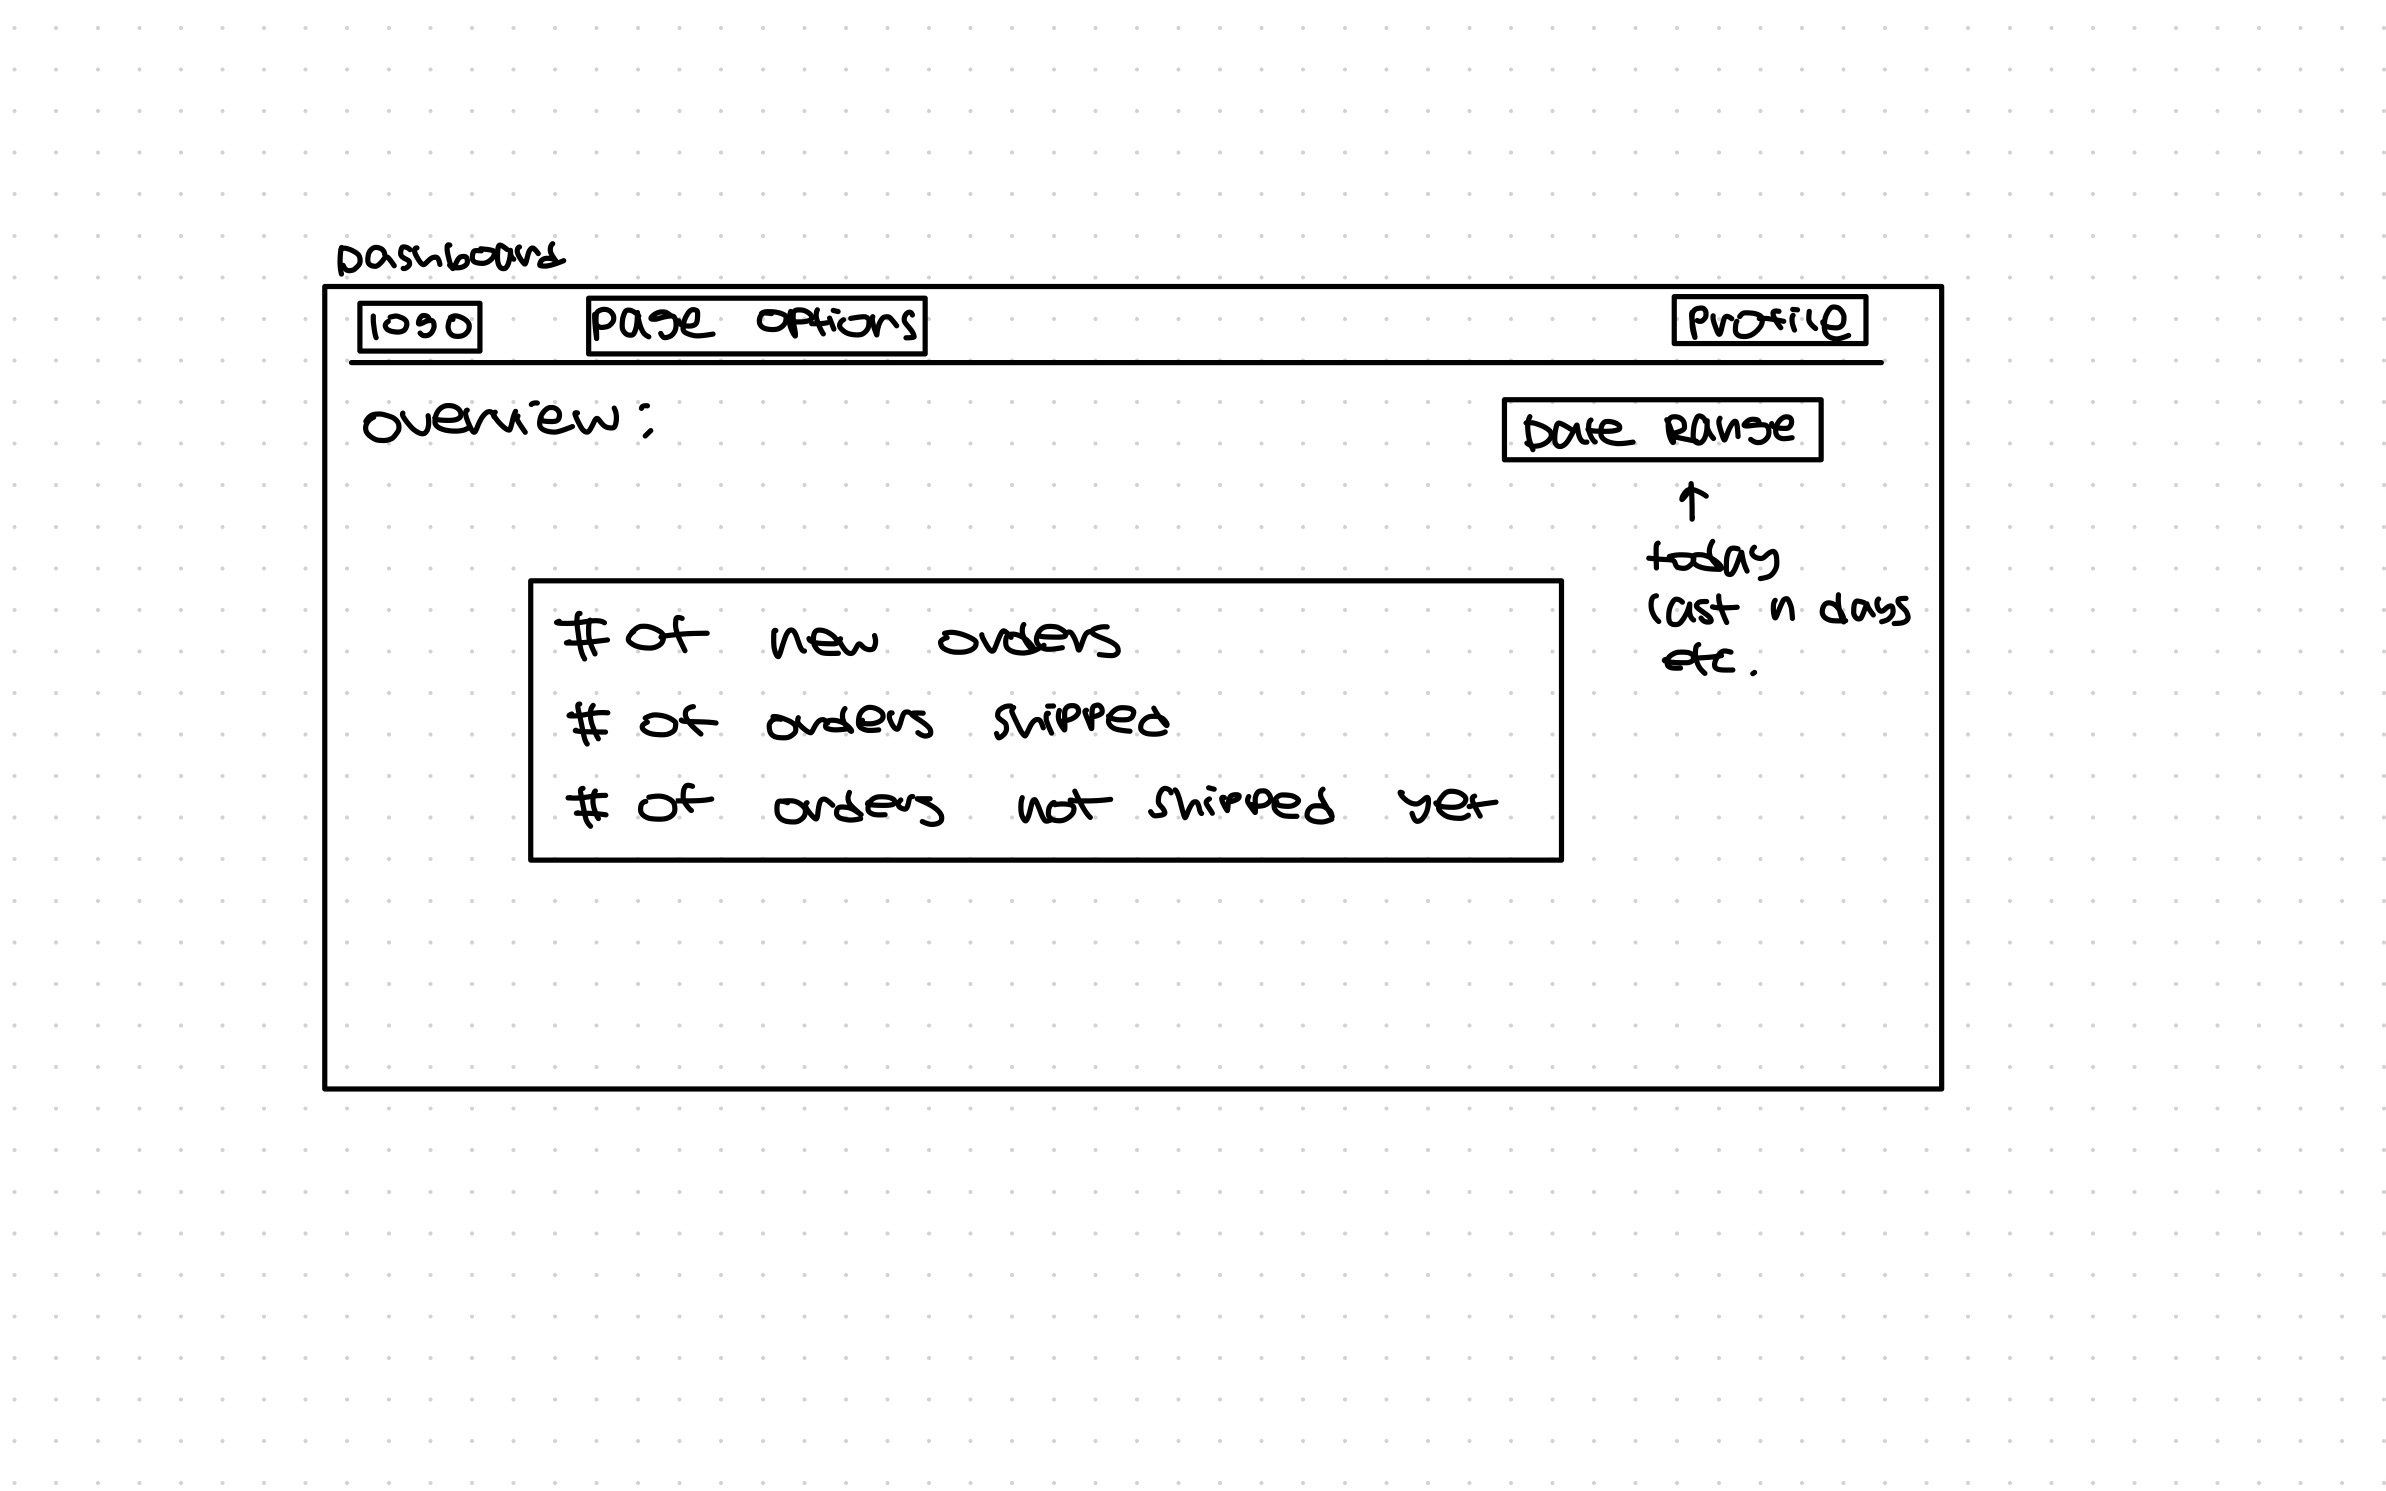 Dashboard
logo
page options
profile
overview:
Date Range
today
last n days
etc.
# of new orders
# of orders shipped
# of orders not shipped yet